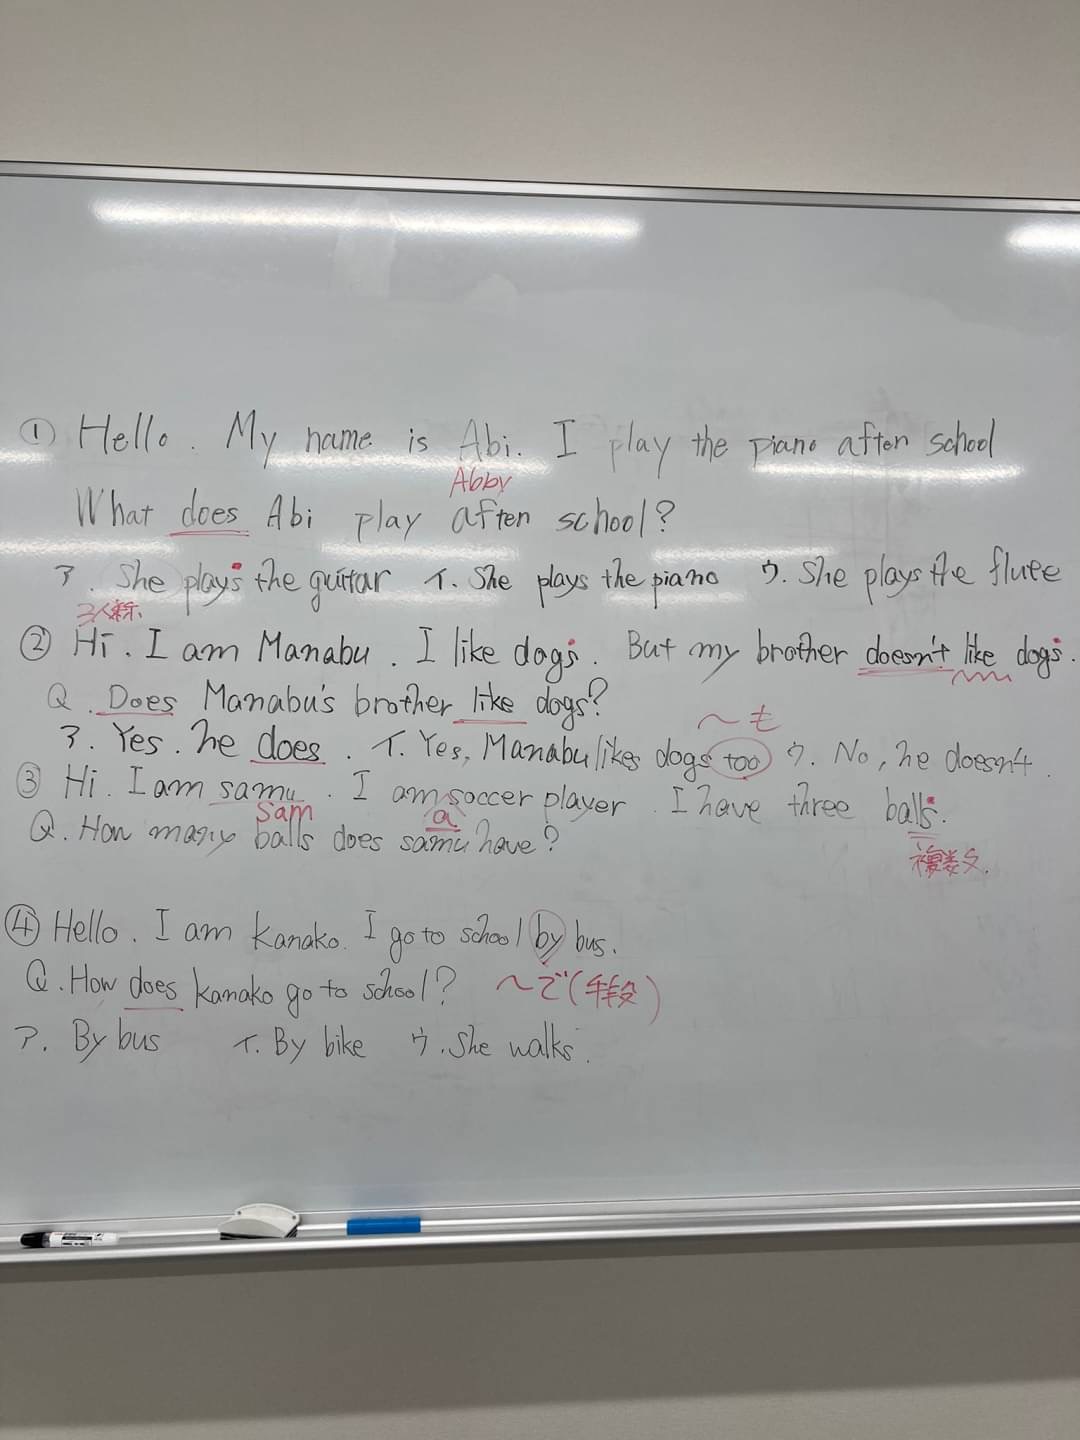 ① Hello. My name is Abi. I play the piano after school
Abby
What does Abi play after school?
ア. She plays the guitar イ. She plays the piano ウ. She plays the flute
3人称
② Hi. I am Manabu. I like dogs. But my brother doesn't like dogs.
Q. Does Manabu's brother like dogs?
～も
ア. Yes. he does. イ. Yes, Manabu likes dogs too ウ. No, he doesn't.
③ Hi. I am samu. I am soccer player. I have three balls.
Sam a
Q. How many balls does samu have?
複数
④ Hello. I am kanako. I go to school by bus.
Q. How does kanako go to school? ～で(手段)
ア. By bus イ. By bike ウ. She walks.